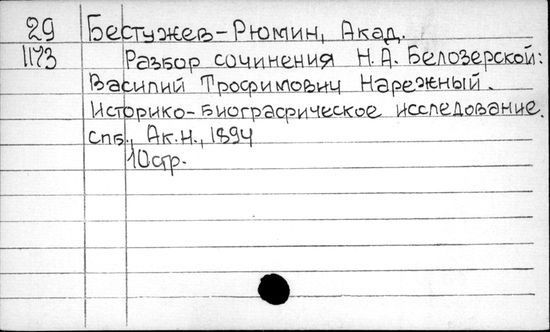 29 Бестужев-Рюмин, Акад.
1173 Разбор сочинения Н.А. Белозерской:
Василий Трофимович Нарежный.
Историко-биографическое исследование.
Спб., Ак.Н., 1894
10стр.